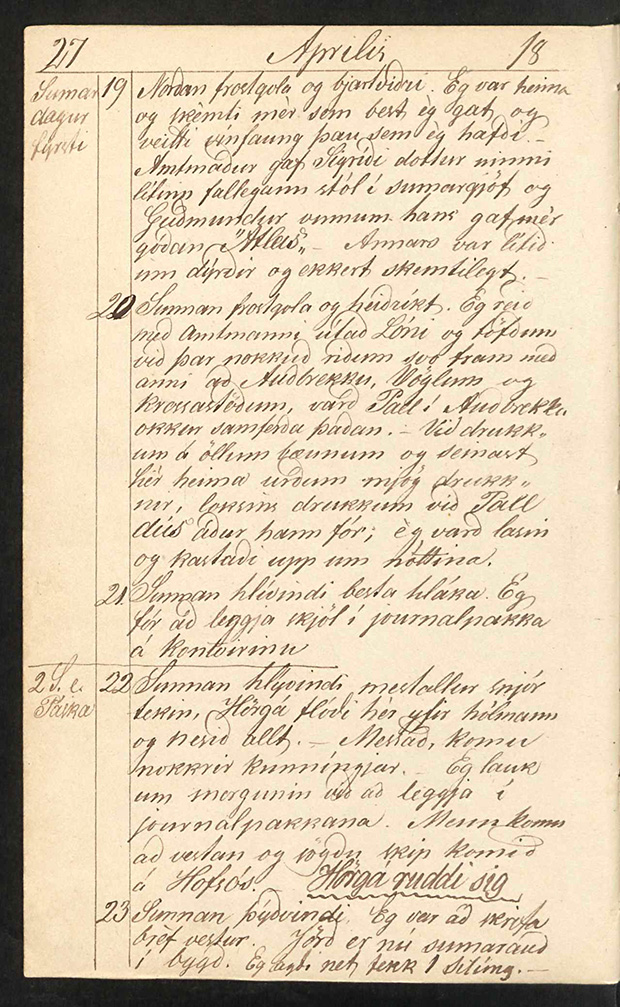 27 Aprilis 18
Sumar 19 Nordan frostgola og bjartvidri. Eg var heima
dagur og skèmti mèr sem best èg gat og
fyrsti veitti vínfaung þau sem èg hafdi. –
Amtmadur gaf Sigrídi dottur minni
litinn fallegann stól í sumargjöf og
Gudmundur vinnum. hans gaf mèr
gódan "Atlas„ – Annars var lítid
um dýrdir og ekkert skemtilegt. –
20 Sunnan frostgola og heidríkt. Eg reid
med Amtmanni útad Lóni og töfdum
vid þar nokkud ridum svo fram med
ánni ad Audbrekku, Vöglum og
Krossastödum, vard Pall í Audbrekku
okkur samferda þadan. – Vid drukk„
um á öllum bæunum og semast
hèr heima urdum mjög drukk„
nir, loksins drukkum vid Pall
dús ádur hann fór; èg vard lasin
og kastadi upp um nóttina.
21. Sunnan hlívindi besta hláka. Eg
fór ád leggja skjöl í journalpakka
á kontoirinu
2 S. e. 22 Sunnan hlývindi mestallur snjór
Páska tekin, Hörgá flódi hèr yfir hólmann
og nesid allt. – Messad, komu
nokkrir kunníngjar. – Eg lauk
um morgunin vid ad leggja í
journalpakkana. Menn komu
ad vestan og sögdu skip komid
á Hofsós. Hörgá ruddi sig
23 Sunnan þýdvindi. Eg var ád skrifa
brèf vestur. Jörd er nú sumaraud
í bygd. Eg lagdi net fekk 1 silúng. –